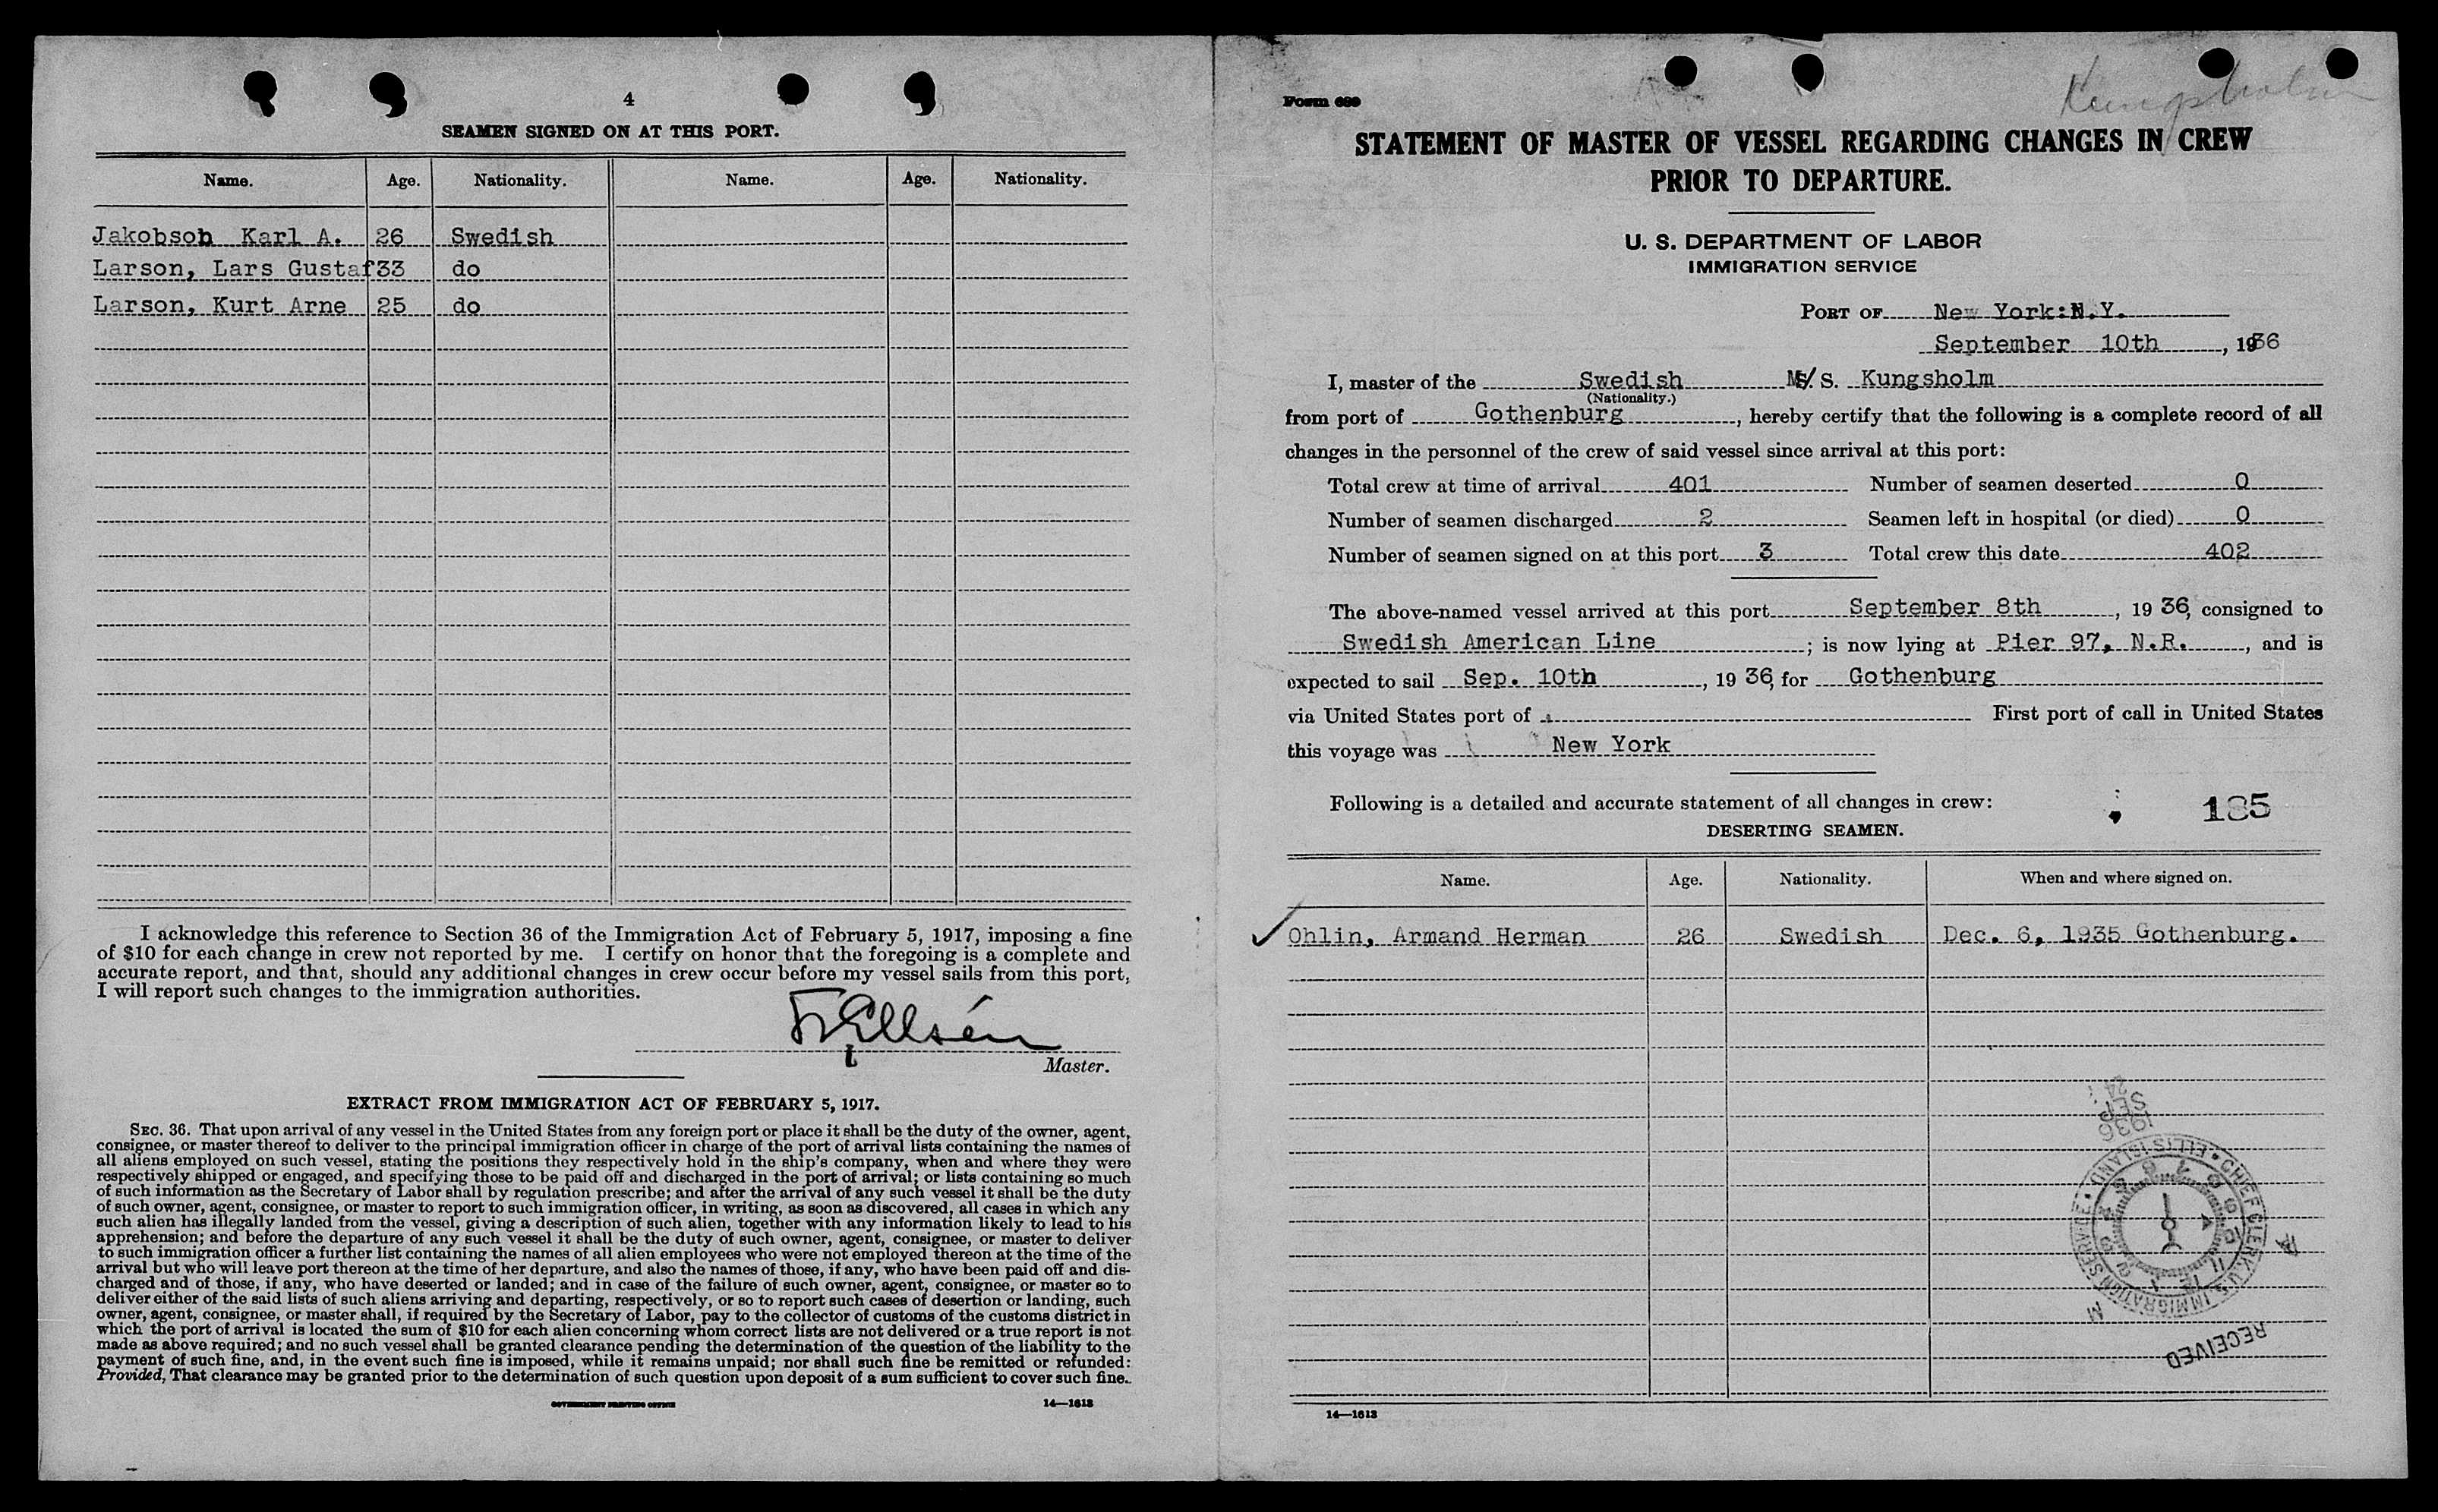 4
SEAMEN SIGNED ON AT THIS PORT.
Name. Age. Nationality. Name. Age. Nationality.
Jakobson Karl A. 26 Swedish
Larson, Lars Gustaf 33 do
Larson, Kurt Arne 25 do
I acknowledge this reference to Section 36 of the Immigration Act of February 5, 1917, imposing a fine
of $10 for each change in crew not reported by me. I certify on honor that the foregoing is a complete and
accurate report, and that, should any additional changes in crew occur before my vessel sails from this port,
I will report such changes to the immigration authorities.
Master.
EXTRACT FROM IMMIGRATION ACT OF FEBRUARY 5, 1917.
SEC. 36. That upon arrival of any vessel in the United States from any foreign port or place it shall be the duty of the owner, agent,
consignee, or master thereof to deliver to the principal immigration officer in charge of the port of arrival lists containing the names of
all aliens employed on such vessel, stating the positions they respectively hold in the ship's company, when and where they were
respectively shipped or engaged, and specifying those to be paid off and discharged in the port of arrival; or lists containing so much
of such information as the Secretary of Labor shall by regulation prescribe; and after the arrival of any such vessel it shall be the duty
of such owner, agent, consignee, or master to report to such immigration officer, in writing, as soon as discovered, all cases in which any
such alien has illegally landed from the vessel, giving a description of such alien, together with any information likely to lead to his
apprehension; and before the departure of any such vessel it shall be the duty of such owner, agent, consignee, or master to deliver
to such immigration officer a further list containing the names of all alien employees who were not employed thereon at the time of the
arrival but who will leave port thereon at the time of her departure, and also the names of those, if any, who have been paid off and dis-
charged and of those, if any, who have deserted or landed; and in case of the failure of such owner, agent, consignee, or master so to
deliver either of the said lists of such aliens arriving and departing, respectively, or so to report such cases of desertion or landing, such
owner, agent, consignee, or master shall, if required by the Secretary of Labor, pay to the collector of customs of the customs district in
which the port of arrival is located the sum of $10 for each alien concerning whom correct lists are not delivered or a true report is not
made as above required; and no such vessel shall be granted clearance pending the determination of the question of the liability to the
payment of such fine, and, in the event such fine is imposed, while it remains unpaid; nor shall such fine be remitted or refunded:
Provided, That clearance may be granted prior to the determination of such question upon deposit of a sum sufficient to cover such fine.
GOVERNMENT PRINTING OFFICE 14—1613
Kungsholm
Form 689
STATEMENT OF MASTER OF VESSEL REGARDING CHANGES IN CREW
PRIOR TO DEPARTURE.
U. S. DEPARTMENT OF LABOR
IMMIGRATION SERVICE
PORT OF New York:N.Y.
September 10th, 1936
I, master of the Swedish M/S. Kungsholm
(Nationality.)
from port of Gothenburg, hereby certify that the following is a complete record of all
changes in the personnel of the crew of said vessel since arrival at this port:
Total crew at time of arrival 401 Number of seamen deserted 0
Number of seamen discharged 2 Seamen left in hospital (or died) 0
Number of seamen signed on at this port 3 Total crew this date 402
The above-named vessel arrived at this port September 8th, 1936, consigned to
Swedish American Line; is now lying at Pier 97, N.R., and is
expected to sail Sep. 10th, 1936, for Gothenburg
via United States port of First port of call in United States
this voyage was New York
Following is a detailed and accurate statement of all changes in crew: 185
DESERTING SEAMEN.
Name. Age. Nationality. When and where signed on.
Ohlin, Armand Herman 26 Swedish Dec. 6, 1935 Gothenburg.
1936
SEP
24
CHIEF CLERK U.S. IMMIGRATION SERVICE • ELLIS ISLAND •
RECEIVED
14—1613